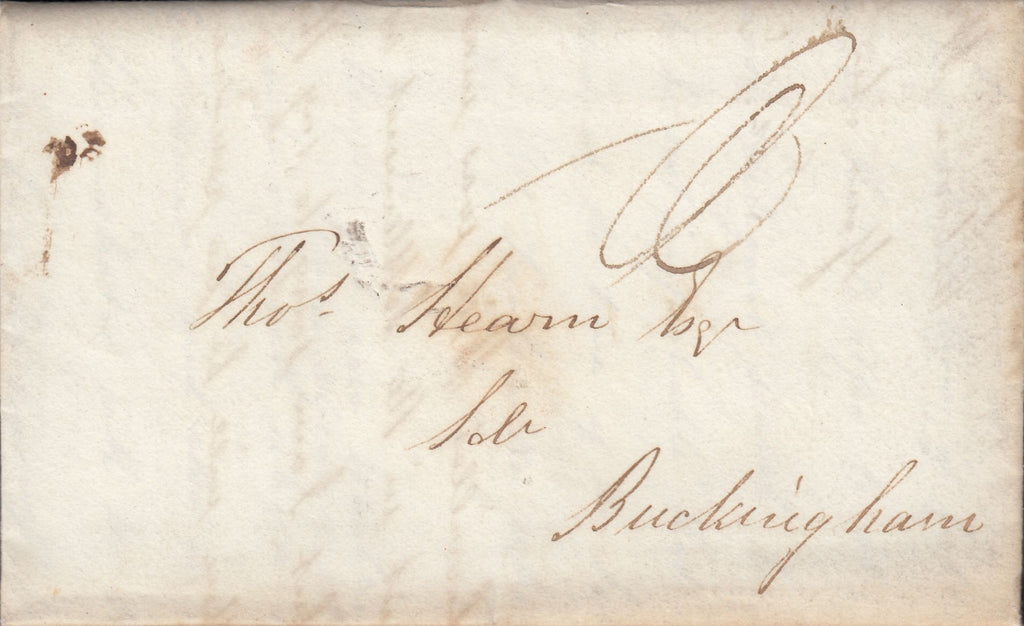 Thos Hearn Esqr
Solr
Buckingham